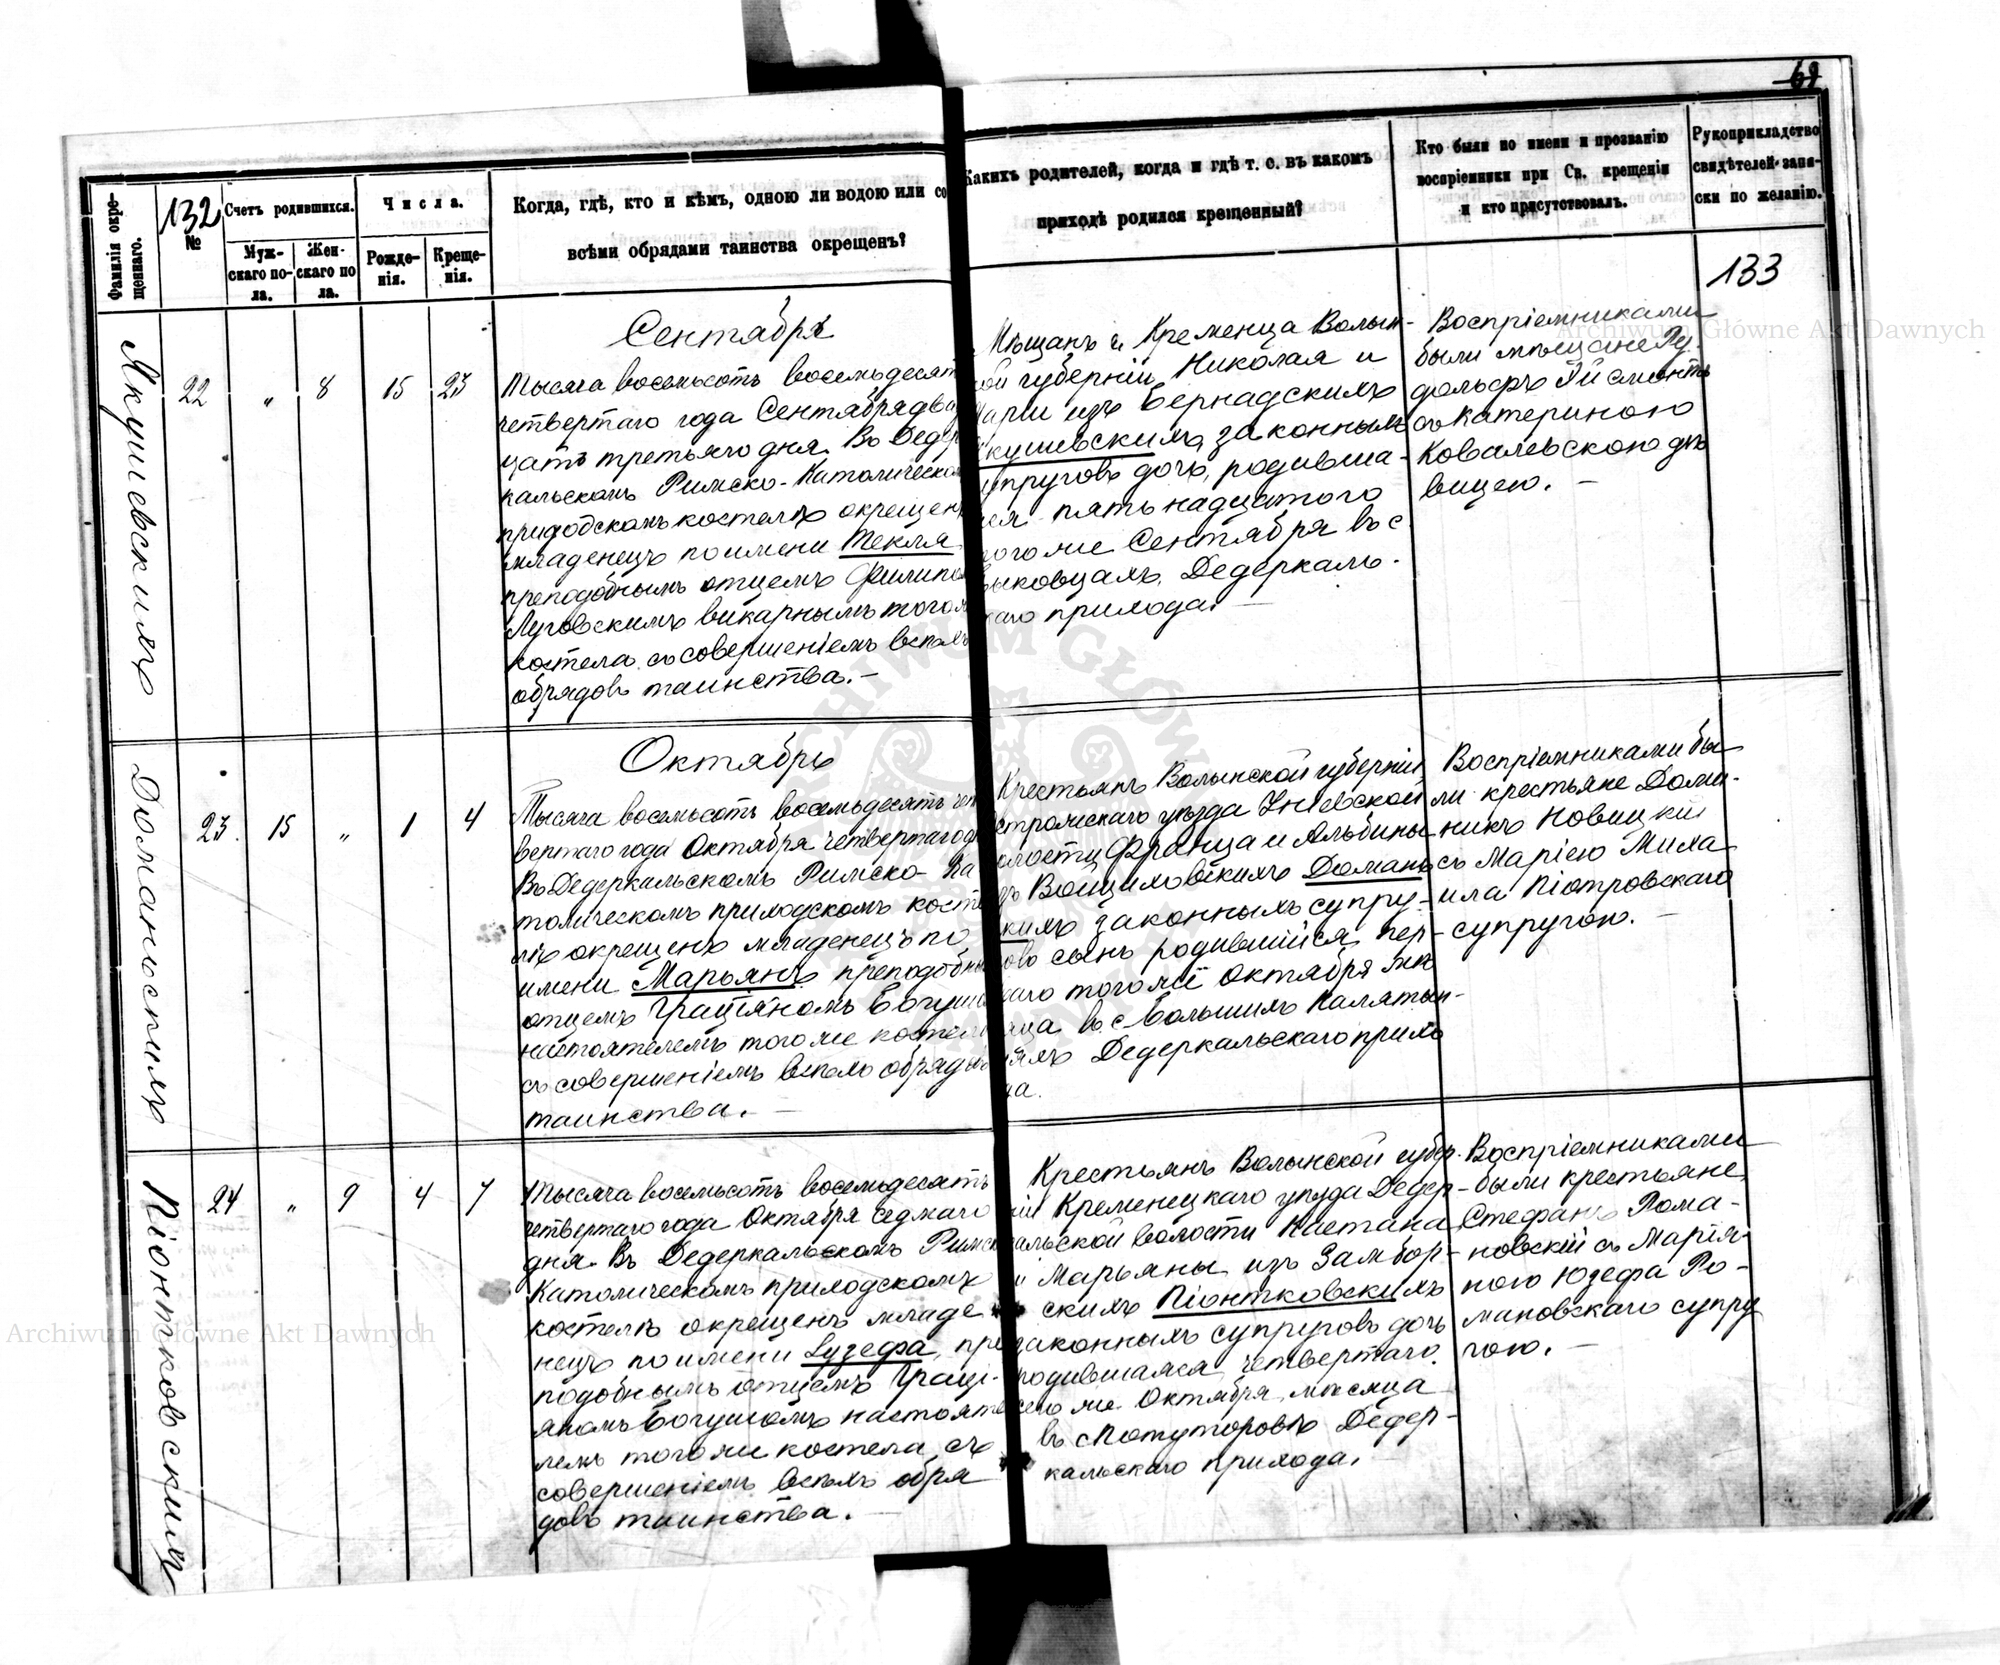 69
Фамилія окре-
щеннаго.
132
№
Счетъ родившихся.
Муж-
скаго по-
ла.
Жен-
скаго по
ла.
Числа.
Рожде-
нія.
Креще-
нія.
Когда, гдѣ, кто и кѣмъ, одною ли водою или со
всѣми обрядами таинства окрещенъ?
Какихъ родителей, когда и гдѣ т. е. въ какомъ
приходѣ родился крещенный?
Кто были по имени и прозванію
воспріемники при Св. крещеніи
и кто присутствовалъ.
Рукоприкладство
свидѣтелей-запи-
ски по желанію.
133
Якушевскихъ
22
„
8
15
23
Сентябрь
Тысяча восемьсотъ восемьдесятъ
четвертаго года Сентября два
цать третьяго дня. Въ Дедер
кальскомъ Римско-Католическом
приходскомъ костелѣ окрещенъ
младенецъ по имени Текля
преподобнымъ отцемъ Филипом
Луговскимъ викарнымъ того ж
костела съ совершеніемъ всѣхъ
обрядовъ таинства.—
Мѣщанъ г. Кременца Волын-
ской губерніи Николая и
Маріи изъ Бернадскихъ
Якушевскихъ законныхъ
супруговъ дочь, родивша-
яся пятьнадцатого
того же Сентября въ с
Быковцахъ, Дедеркаль-
скаго прихода.—
Воспріемниками
были мѣщане Ру-
дольфъ Гисмонтъ
съ Катериною
Ковалевскою дѣ
вицею.—
Доманьскихъ
23.
15
„
1
4
Октябрь
Тысяча восемьсотъ восемьдесятъ чет
вертаго года Октября четвертаго дн
Въ Дедеркальскомъ Римско-Ка
толическомъ приходскомъ косте
лѣ окрещенъ младенецъ по
имени Марьянъ преподобны
отцемъ Граціяномъ Богуш
настоятелемъ того же костел
съ совершеніемъ всѣхъ обрядов
таинства.—
Крестьянъ Волынской губерніи
Острожскаго уѣзда Уніевской
волости Франца и Альбины
изъ Войциховскихъ Домань-
скихъ законныхъ супру-
говъ сынъ родившійся пер-
ваго того же Октября мѣ
сяца въ с Большихъ Калятын-
цяхъ Дедеркальскаго прихо
да.
Воспріемниками бы
ли крестьяне Доми-
никъ Новицкій
съ Маріею Миха
ила Піотровскаго
супругою.—
Піонтковскихъ
24
„
9
4
7
Тысяча восемьсотъ восемьдесятъ
четвертаго года Октября седмаго
дня. Въ Дедеркальскомъ Римско
Католическомъ приходскомъ
костелѣ окрещенъ младе
нецъ по имени Іузефа, пре
подобнымъ отцемъ Граці-
яномъ Богушомъ настояте
лемъ того же костела, съ
совершеніемъ всѣхъ обря
довъ таинства.—
Крестьянъ Волынской губер-
ніи Кременецкаго уѣзда Дедер-
кальской волости Каетана
и Марьяны изъ Замбор-
скихъ Піонтковскихъ
законныхъ супруговъ дочь
родившаяся четвертаго
сего же Октября мѣсяца
въ с Потуторовѣ Дедер-
кальскаго прихода.
Воспріемниками
были крестьяне
Стефанъ Рома-
новскій съ Марія-
ною Юзефа Ро-
мановскаго супру
гою.—
Archiwum Główne Akt Dawnych
Archiwum Główne Akt Dawnych